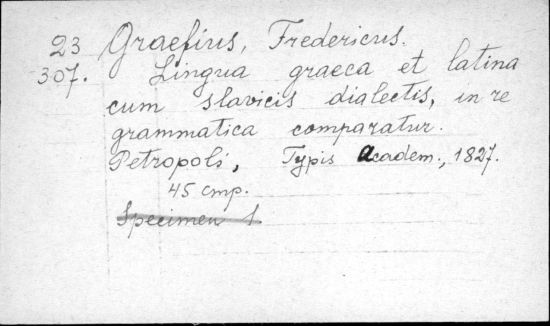 23 Graefius, Fredericus.
307. Lingua graeca et latina
cum slavicis dialectis, in re
grammatica comparatur.
Petropoli, Typis Academ., 1827.
45 стр.
Specimen 1